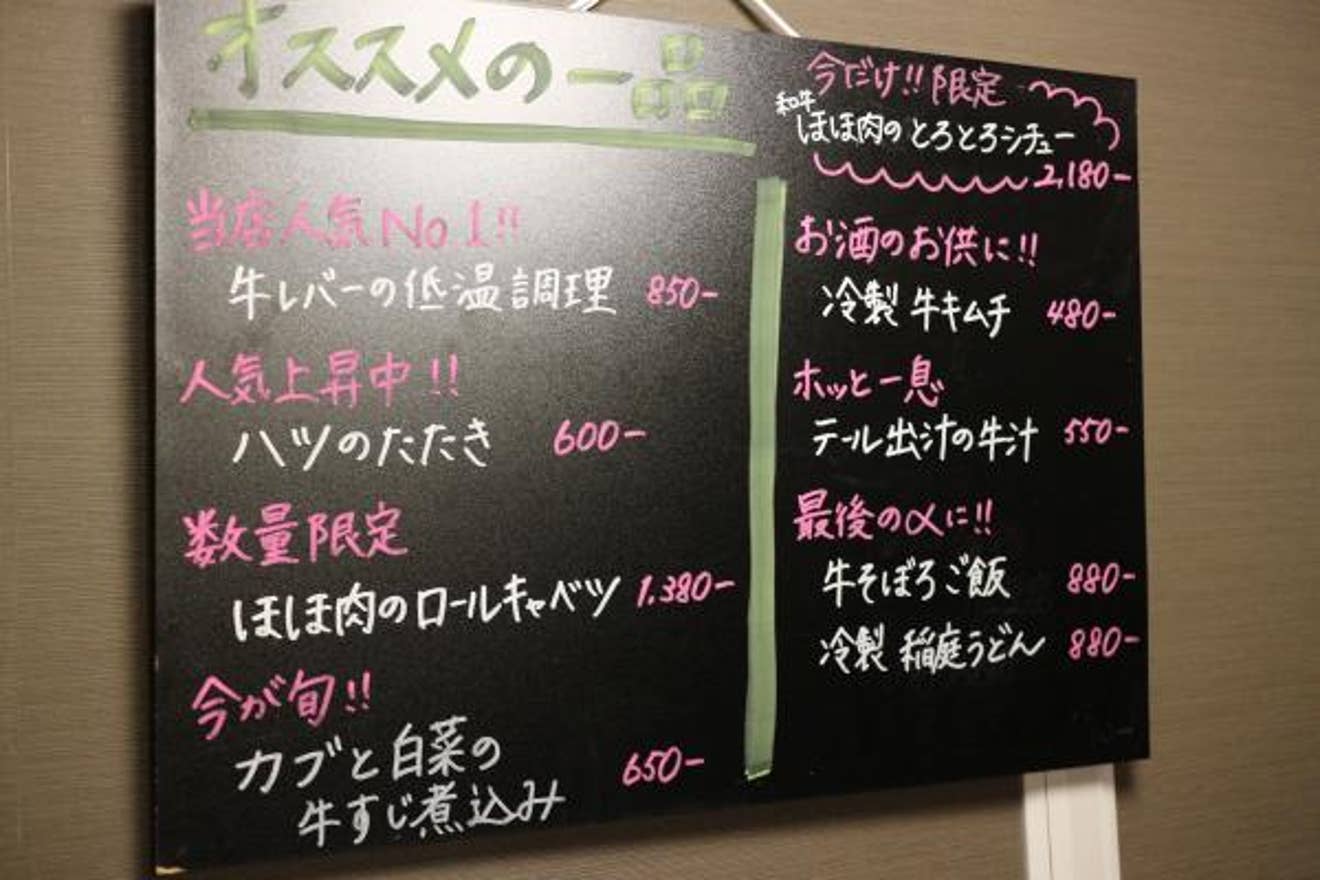 オススメの一品
当店人気No.1!!
牛レバーの低温調理 850-
人気上昇中!!
ハツのたたき 600-
数量限定
ほほ肉のロールキャベツ 1.380-
今が旬!!
カブと白菜の
牛すじ煮込み 650-
今だけ!!限定
和牛
ほほ肉のとろとろシチュー
2,180-
お酒のお供に!!
冷製 牛キムチ 480-
ホッと一息
テール出汁の牛汁 550-
最後のαに!!
牛そぼろご飯 880-
冷製 稲庭うどん 880-